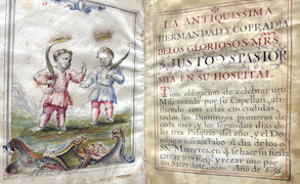 LA ANTIQUISSIMA
HERMANDAD Y COFRADIA
DE LOS GLORIOSOS MRS.
DE JUSTO Y PASTOR
SITA EN SU HOSPITAL.
Tiene obligacion de celebrar una
Missa rezada por su Capellan, assi-
tiendo con velas encendidas,
todos los Domingos primeros de
cada mes, y los segundos dias de
las tres Pasquas del año, y el Do-
mingo infraoctabo al dia de los
Ss. Martyres, en q. se hace su fiesta
cantar tres Resp. y rezar uno por
sus
Año de